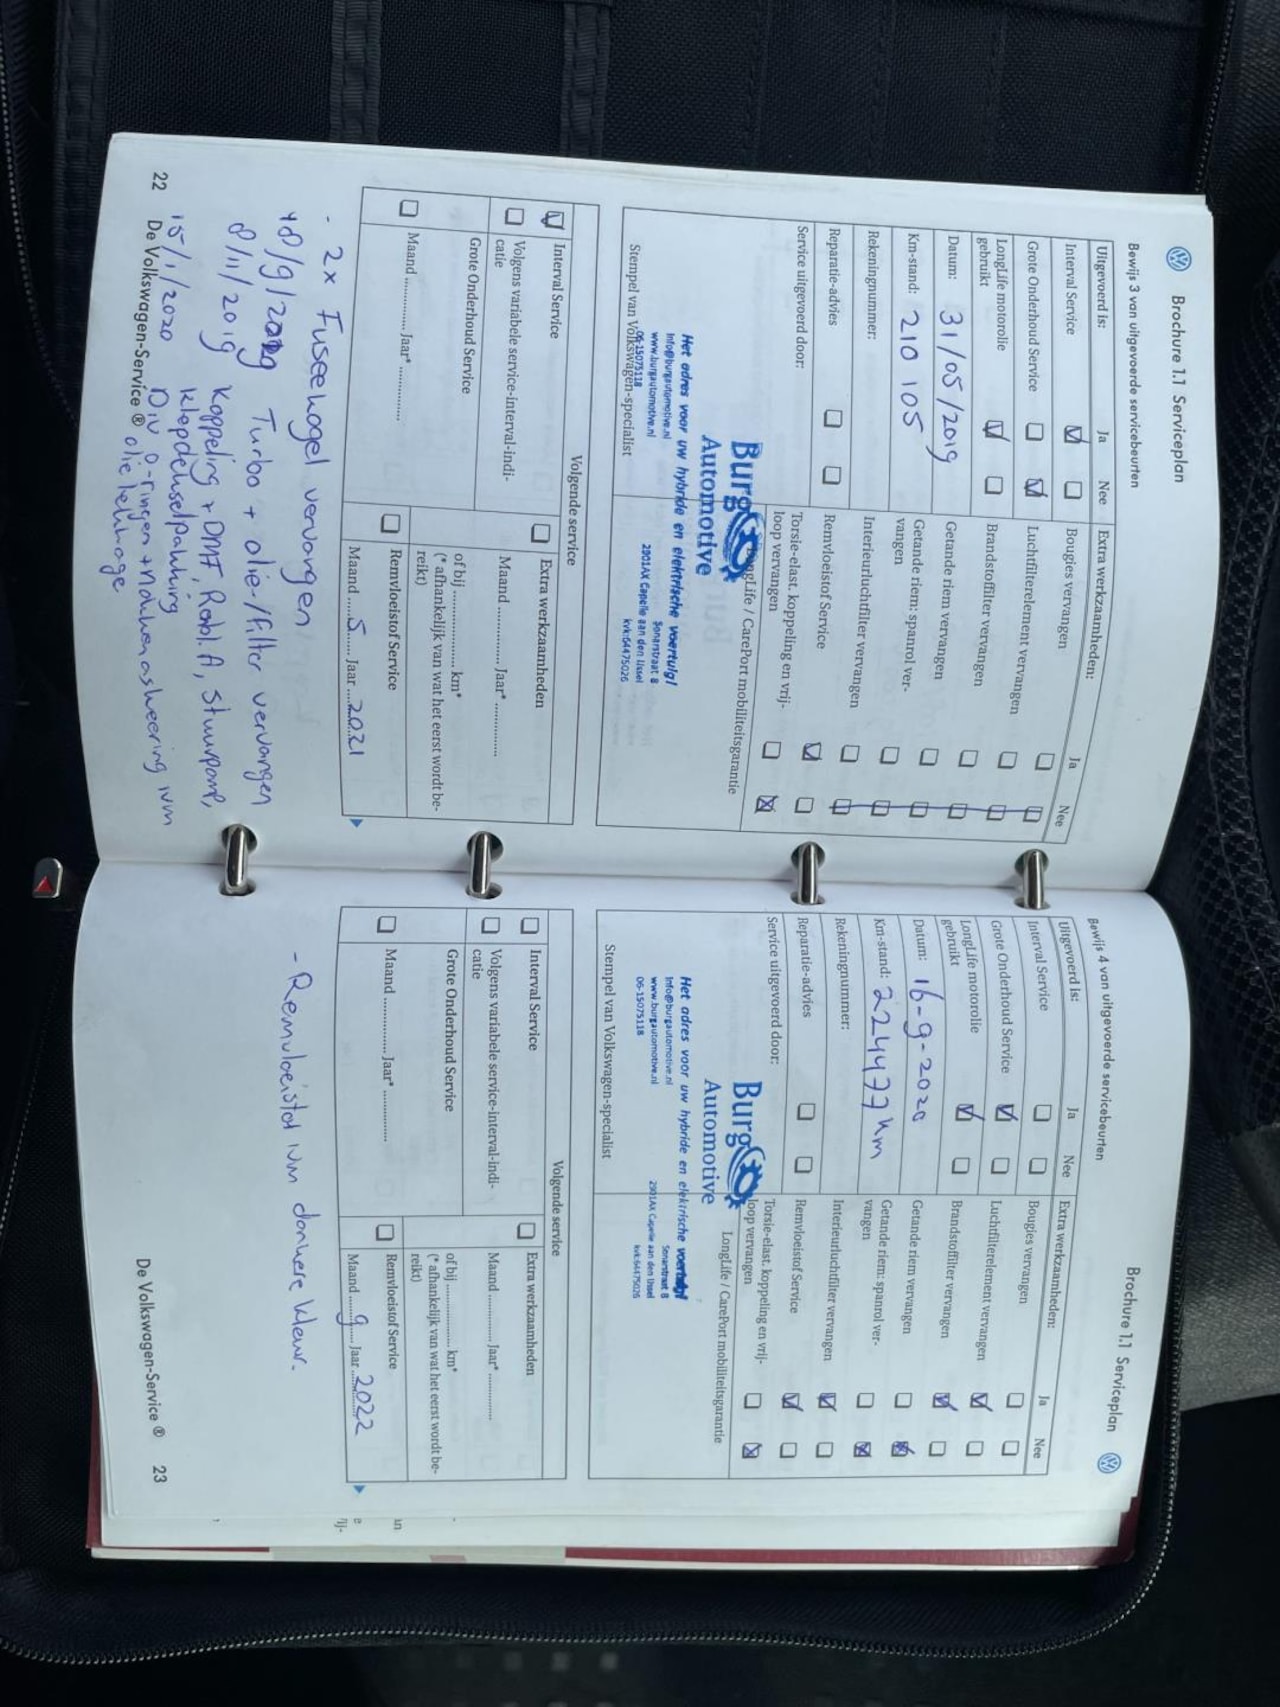 Brochure 1.1 Serviceplan
Bewijs 3 van uitgevoerde servicebeurten
Uitgevoerd is: Ja Nee
Interval Service
Grote Onderhoud Service
LongLife motorolie
gebruikt
Datum: 31/05/2019
Km-stand: 210 105
Rekeningnummer:
Reparatie-advies
Service uitgevoerd door:
Extra werkzaamheden: Ja Nee
Bougies vervangen
Luchtfilterelement vervangen
Brandstoffilter vervangen
Getande riem vervangen
Getande riem: spanrol ver-
vangen
Interieurluchtfilter vervangen
Remvloeistof Service
Torsie-elast. koppeling en vrij-
loop vervangen
LongLife / CarePort mobiliteitsgarantie
Burg
Automotive
Het adres voor uw hybride en elektrische voertuig!
info@burgautomotive.nl
www.burgautomotive.nl
06-15075118
Sonarstraat 8
2901AX Capelle aan den IJssel
kvk:64475026
Stempel van Volkswagen-specialist
Volgende service
Interval Service
Volgens variabele service-interval-indi-
catie
Grote Onderhoud Service
Maand ............... Jaar* ...............
Extra werkzaamheden
Maand ............... Jaar* ...............
of bij ............... km*
(* afhankelijk van wat het eerst wordt be-
reikt)
Remvloeistof Service
Maand ......5...... Jaar ....2021
- 2x Fuseekogel vervangen
Turbo + olie-/filter vervangen
8/11/2019 Koppeling + DMF, Stuurpomp,
klepdekselpakking
15/1/2020 Div o-ringen + nokkenaskeering ivm
olielekkage
22 De Volkswagen-Service ®
Brochure 1.1 Serviceplan
Bewijs 4 van uitgevoerde servicebeurten
Uitgevoerd is: Ja Nee
Interval Service
Grote Onderhoud Service
LongLife motorolie
gebruikt
Datum: 16-9-2020
Km-stand: 224477 km
Rekeningnummer:
Reparatie-advies
Service uitgevoerd door:
Extra werkzaamheden: Ja Nee
Bougies vervangen
Luchtfilterelement vervangen
Brandstoffilter vervangen
Getande riem vervangen
Getande riem: spanrol ver-
vangen
Interieurluchtfilter vervangen
Remvloeistof Service
Torsie-elast. koppeling en vrij-
loop vervangen
LongLife / CarePort mobiliteitsgarantie
Burg
Automotive
Het adres voor uw hybride en elektrische voertuig!
info@burgautomotive.nl
www.burgautomotive.nl
06-15075118
Sonarstraat 8
2901AX Capelle aan den IJssel
kvk:64475026
Stempel van Volkswagen-specialist
Volgende service
Interval Service
Volgens variabele service-interval-indi-
catie
Grote Onderhoud Service
Maand ............... Jaar* ...............
Extra werkzaamheden
Maand ............... Jaar* ...............
of bij ............... km*
(* afhankelijk van wat het eerst wordt be-
reikt)
Remvloeistof Service
Maand ......9...... Jaar ....2022
- Remvloeistof ivm donkere kleur.
De Volkswagen-Service ® 23